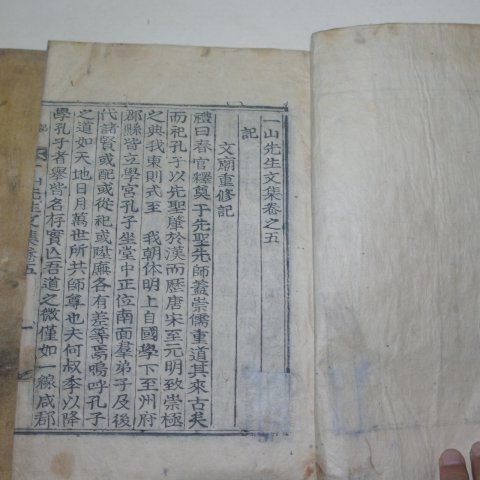 一山先生文集卷之五
記
文廟重修記
禮曰春官釋奠于先聖先師蓋崇儒重道其來古矣
而祀孔子以先聖肇於漢而歷唐宋至元明致崇極
之典我東則式至 我朝休明上自國學下至州府
郡縣皆立學宮孔子坐堂中正位南面羣弟子及後
代諸賢或配或從祀或陞廡各有差等焉嗚呼孔子
之道如天地日月萬世所共師尊也夫何叔季以降
學孔子者擧皆名存實亡吾道之微僅如一線咸郡
記
一山先生文集卷五